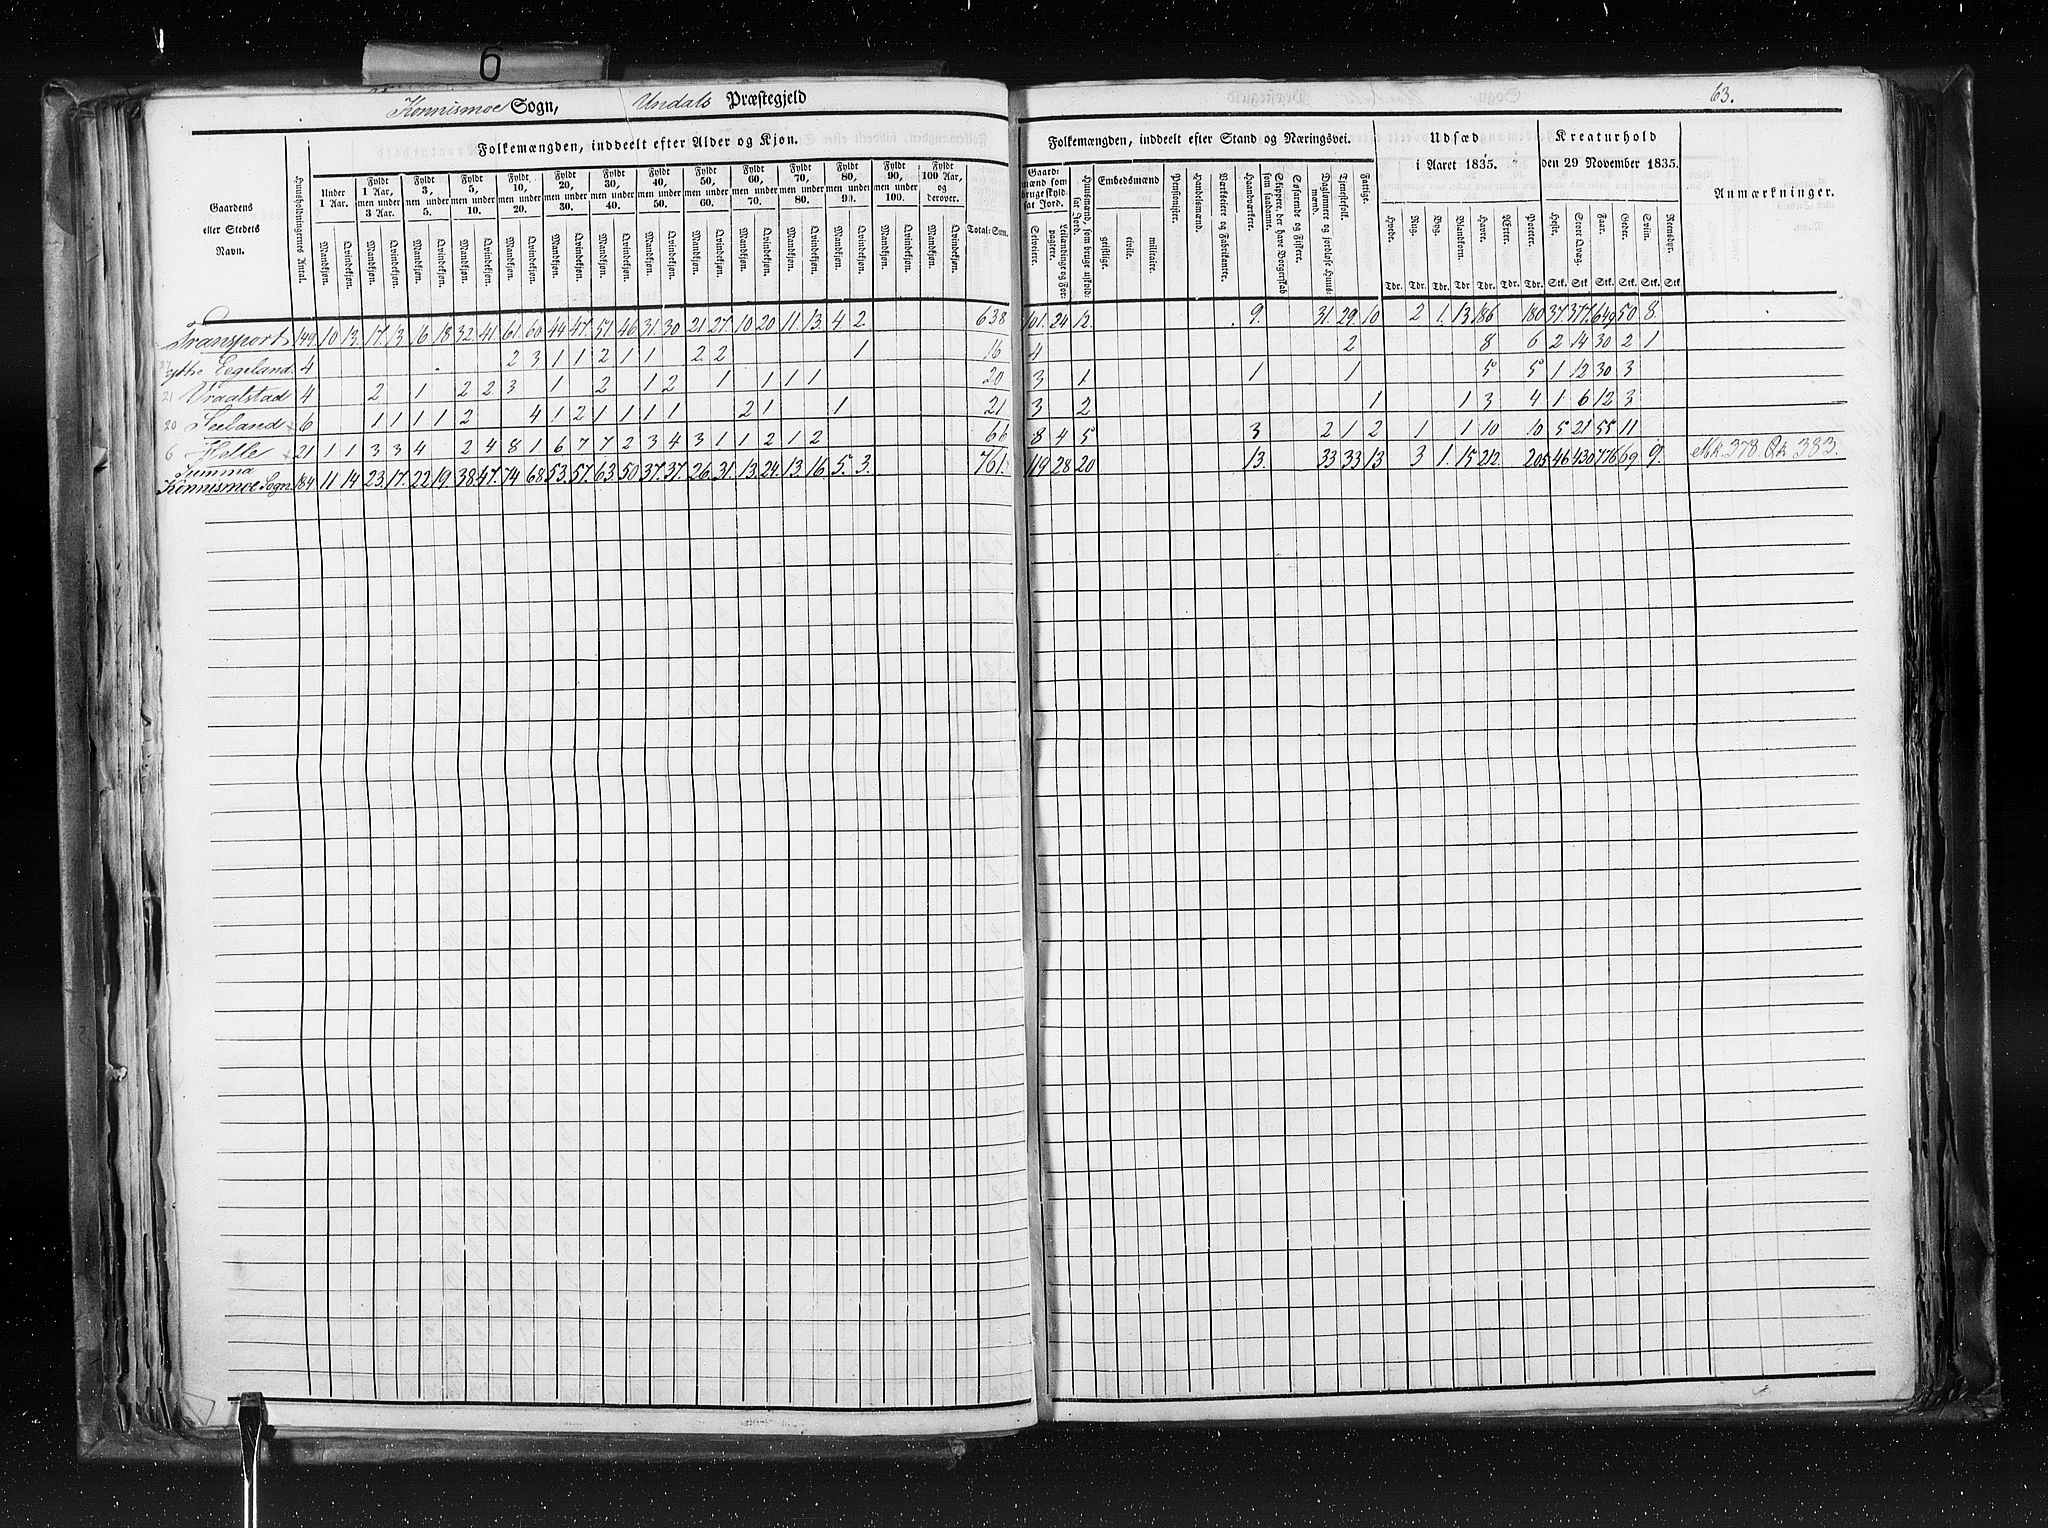 6
Konnismoe Sogn, Undals Præstegjeld
63.
Gaardens eller Stedets Navn.
Huusholdningernes Antal.
Folkemængden, inddeelt efter Alder og Kjøn.
Under 1 Aar.
Fyldt 1 Aar, men under 3 Aar.
Fyldt 3, men under 5.
Fyldt 5, men under 10.
Fyldt 10, men under 20.
Fyldt 20, men under 30.
Fyldt 30, men under 40.
Fyldt 40, men under 50.
Fyldt 50, men under 60.
Fyldt 60, men under 70.
Fyldt 70, men under 80.
Fyldt 80, men under 90.
Fyldt 90, men under 100.
Fyldt 100 Aar, og derover.
Mandkjøn. Qvindekjøn. Mandkjøn. Qvindekjøn. Mandkjøn. Qvindekjøn. Mandkjøn. Qvindekjøn. Mandkjøn. Qvindekjøn. Mandkjøn. Qvindekjøn. Mandkjøn. Qvindekjøn. Mandkjøn. Qvindekjøn. Mandkjøn. Qvindekjøn. Mandkjøn. Qvindekjøn. Mandkjøn. Qvindekjøn. Mandkjøn. Qvindekjøn. Mandkjøn. Qvindekjøn. Mandkjøn. Qvindekjøn.
Total-Sum.
Folkemængden, inddeelt efter Stand og Næringsvei.
Gaardmænd som bruge skyldsat Jord.
Selveiere.
Leilændinge og Forpagtere.
Huusmænd, som bruge skyldsat Jord.
Embedsmænd
geistlige.
civile.
militaire.
Pensionister.
Handelsmænd.
Værkeiere og Fabrikanter.
Haandværkere.
Skippere, der have Borgerskab som saadanne.
Søfarende og Fiskere.
Daglønnere og jordløse Huusmænd.
Tjenestefolk.
Fattige.
Udsæd i Aaret 1835.
Hvede. Rug. Byg. Blandkorn. Havre. Erter. Poteter.
Tdr. Tdr. Tdr. Tdr. Tdr. Tdr. Tdr.
Kreaturhold den 29 November 1835.
Heste. Stort Qvæg. Faar. Geder. Sviin. Rensdyr.
Stk. Stk. Stk. Stk. Stk. Stk.
Anmærkninger.
Transport 149. 10 13. 17. 13. 16 18 32. 41. 61. 60 44 47. 51. 46 31. 30 21 27. 10 20 11. 13. 4 2. 638 101. 24 12. 9. 31. 29. 10 2 1. 13 186 180 37. 377. 649 50 8.
ytre Eegeland. 4 2 3 1 1 2 1 1 2 2 1 16 4 2 8 6 2 14 30 2 1
21 Vraalstad 4 2 1 2 2 3 1 2 1 2 1 1 1 1 20 3 1 1 1 5 5 1 12 30 3
20 Seeland 6 1 1 1 1 2 4 1 2 1 1 1 1 2 1 1 21 3 2 1 1 3 4 1 6 12 3
6 Helle 21 1 1 3 3 4 2 4 8 1 6 7 7 2 3 4 3 1 1 2 1 2 66 8 4 5 3 2 1 2 1 1 10 10 5 21 55 11
Summa
Konnismoe Sogn. 184 11 14 23. 17. 22 19 38 47. 74 68 53. 57. 63. 50 37. 37. 26. 31. 13. 24. 13. 16. 5. 3. 761. 119 28 20 13. 33 33 13 3 1. 15 212. 205 46 430 776 69 9. Mk. 378. Qk 383.